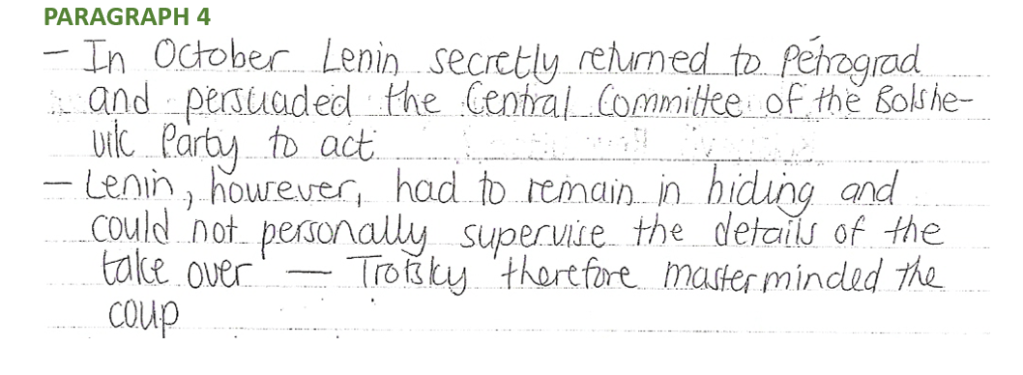 PARAGRAPH 4
– In October Lenin secretly returned to Petrograd
and persuaded the Central Committee of the Bolshe-
vik Party to act.
– Lenin, however, had to remain in hiding and
could not personally supervise the details of the
take over — Trotsky therefore masterminded the
coup